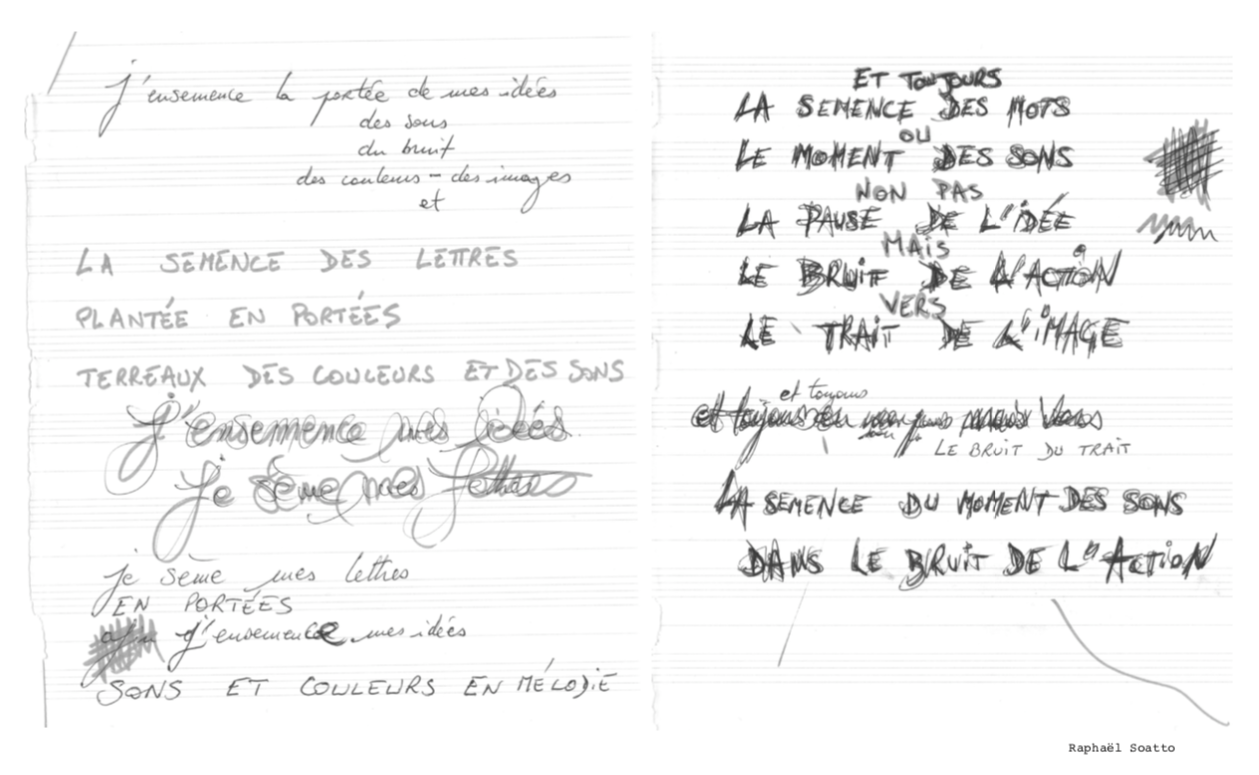 j'ensemence la portée de mes idées
des sons
du bruit
des couleurs - des images
et
LA SEMENCE DES LETTRES
PLANTÉE EN PORTÉES
TERREAUX DES COULEURS ET DES SONS
J'ensemence mes idées
Je sème mes lettres
je sème mes lettres
EN PORTÉES
j'ensemence mes idées
SONS ET COULEURS EN MÉLODIE
ET TOUJOURS
LA SEMENCE DES MOTS
OU
LE MOMENT DES SONS
NON PAS
LA PAUSE DE L'IDÉE
MAIS
LE BRUIT DE L'ACTION
VERS
LE TRAIT DE L'IMAGE
et toujours
et toujours
LE BRUIT DU TRAIT
LA SEMENCE DU MOMENT DES SONS
DANS LE BRUIT DE L'ACTION
Raphaël Soatto